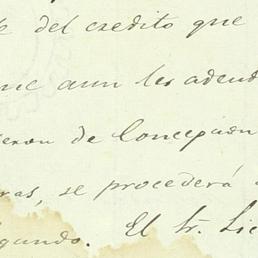 del credito que
que aun les adeud
de Concepcion
ras, se procederá
gundo. El Sr. Lic